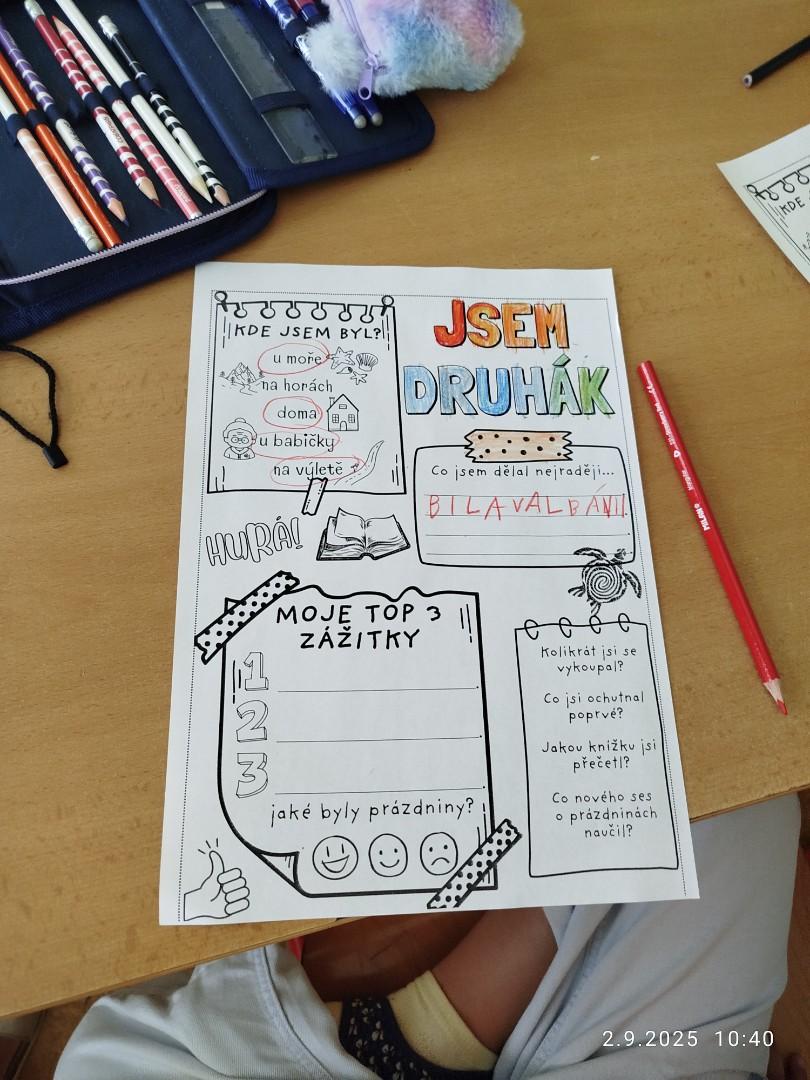 KDE JSEM BYL?
u moře
na horách
doma
u babičky
na výletě
JSEM
DRUHÁK
Co jsem dělal nejraději...
BILAVALBÁNII.
HURÁ!
MOJE TOP 3
ZÁŽITKY
1
2
3
jaké byly prázdniny?
Kolikrát jsi se
vykoupal?
Co jsi ochutnal
poprvé?
Jakou knížku jsi
přečetl?
Co nového ses
o prázdninách
naučil?
KDE
MILAN
2.9.2025 10:40